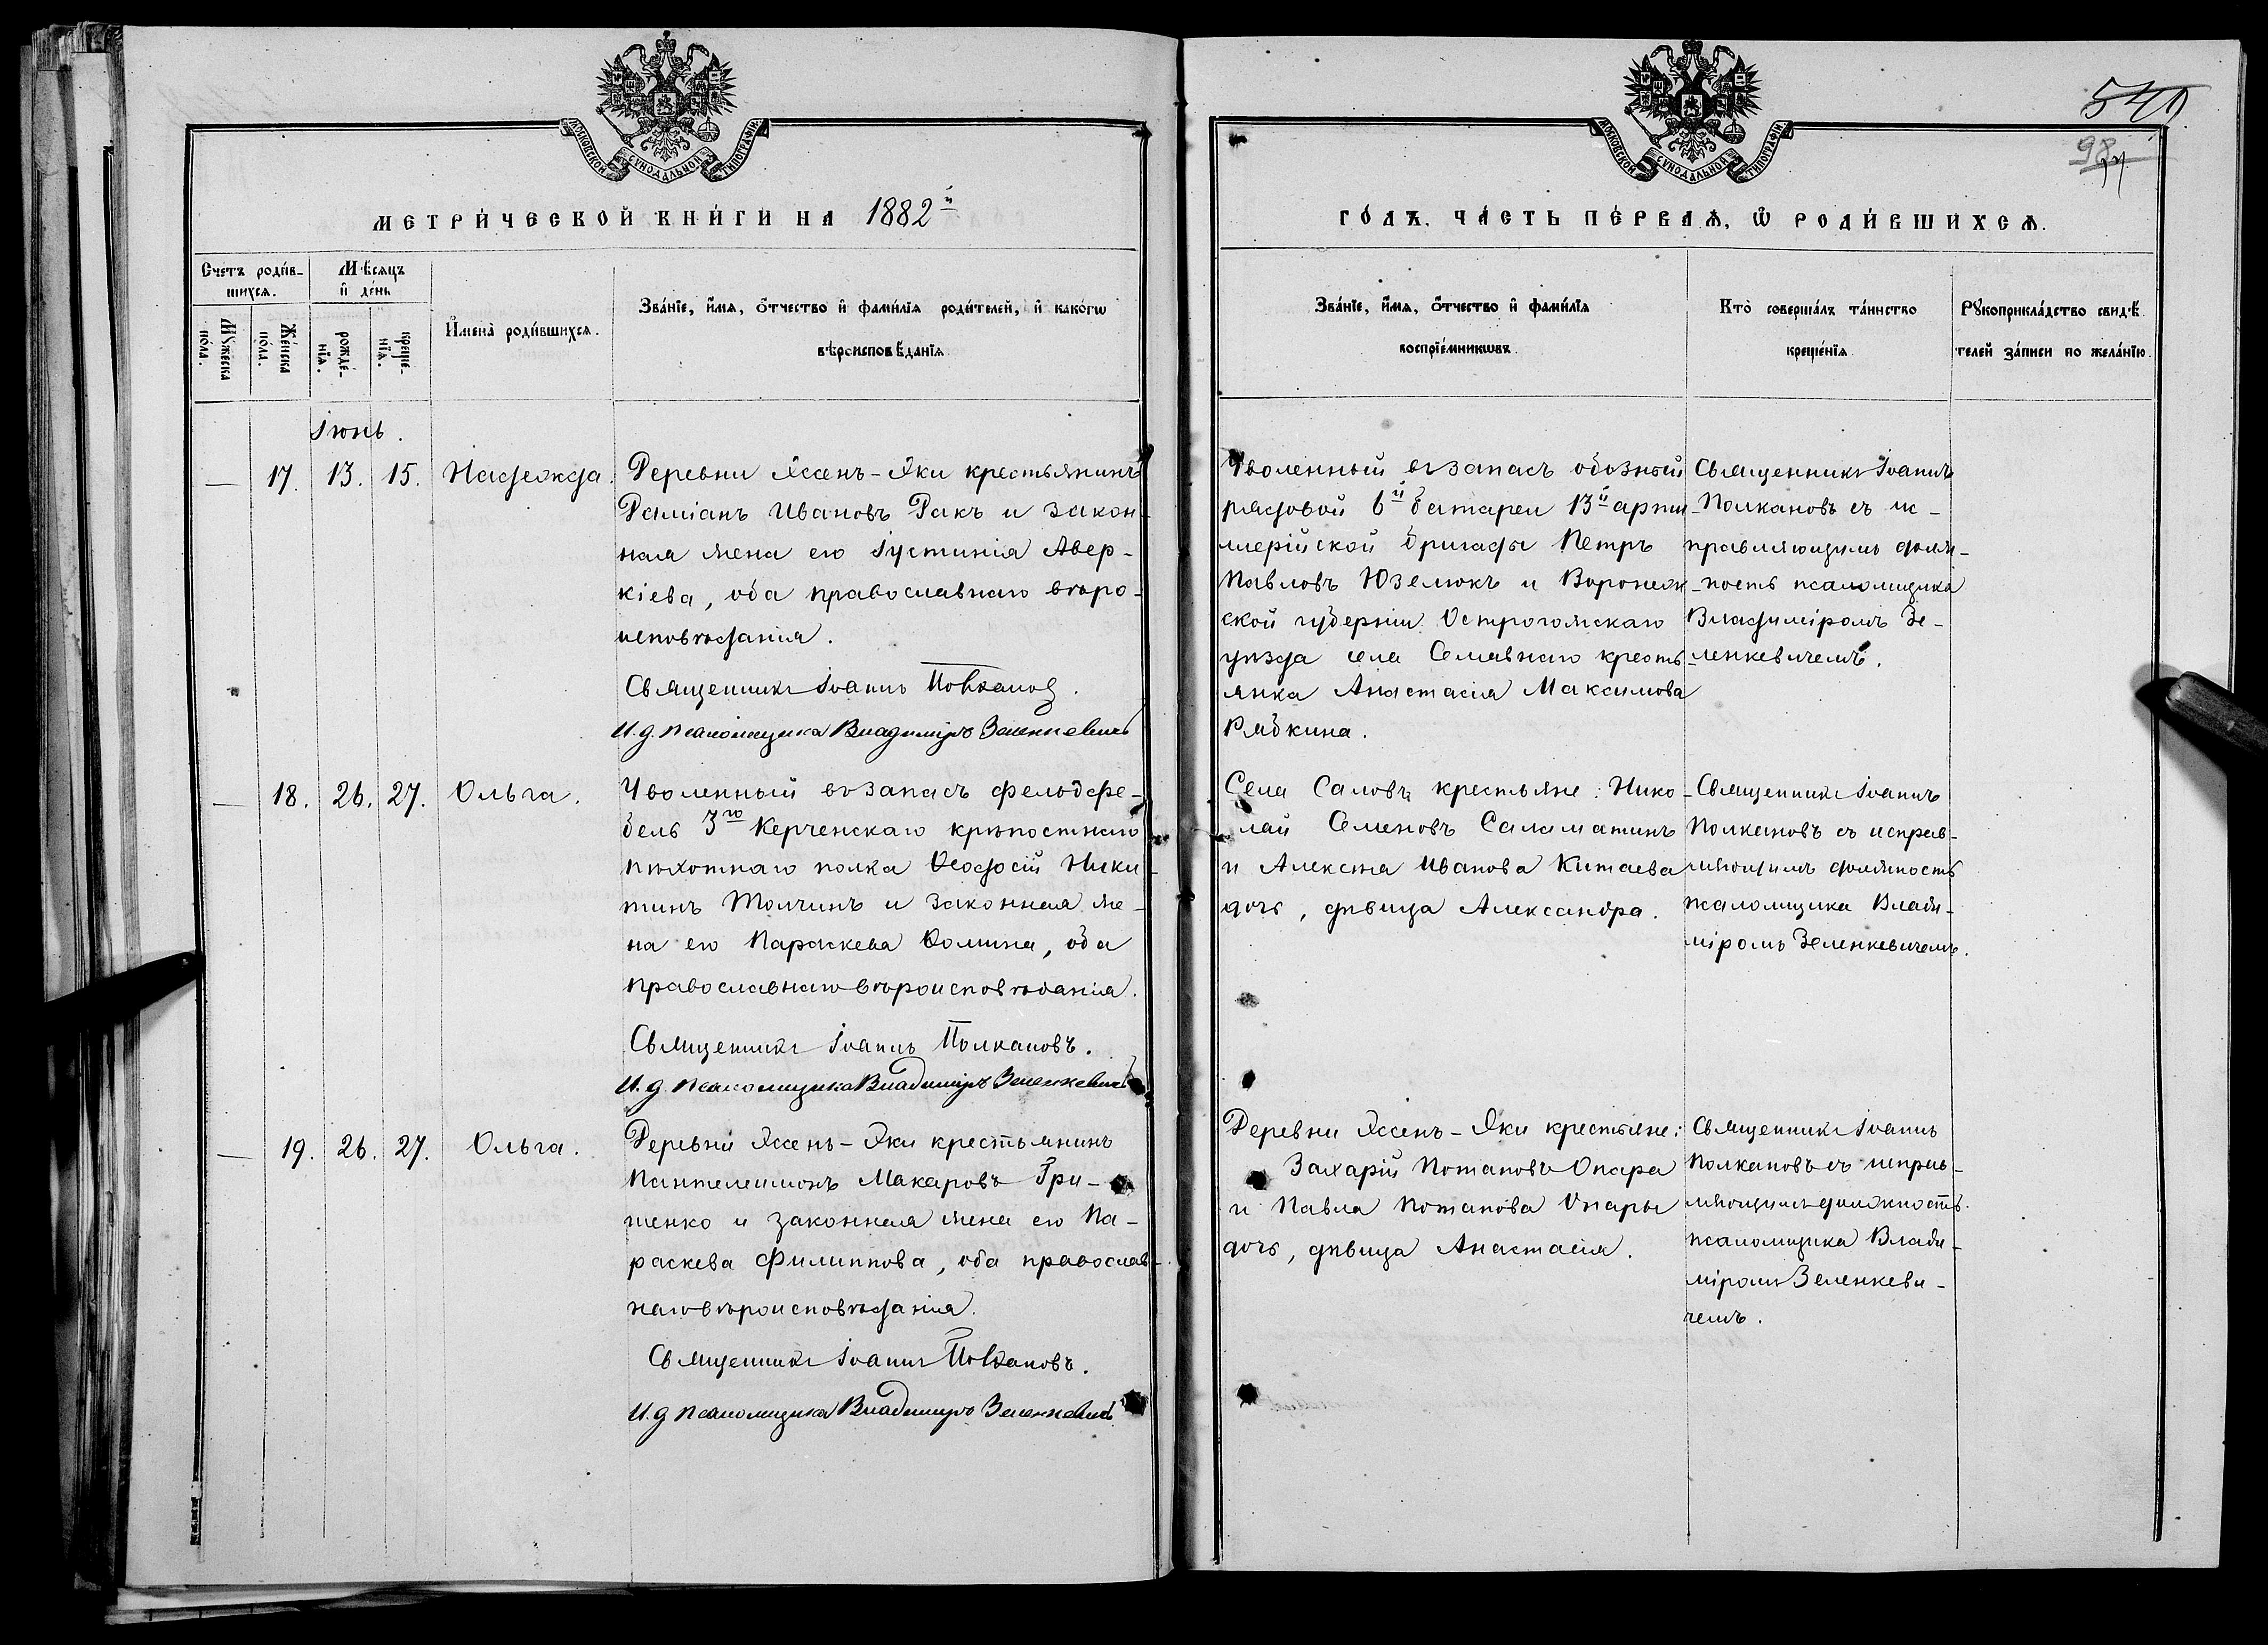 МОСКОВСКОЙ СѴНОДАЛЬНОЙ ТИПОГРАФІИ.
МЕТРИ́ЧЕСКОЙ КНИ́ГИ НА 1882й
Счетъ роди́в-
шихсѧ.
Мѣсяцъ
и҆ де́нь
Мꙋжеска
по́ла.
Же́нска
по́ла.
рожде́-
нїѧ.
креще-
нїѧ.
И҆мена̀ роди́вшихсѧ.
Зва́нїе, и҆́мѧ, ѻ҆́тчество и҆ фами́лїѧ роди́телей, и҆ како́гѡ
вѣроисповѣ́данїѧ.
Іюнь.
— 17. 13. 15. Надежда.
Деревни Ясенъ-Яки крестьянинъ
Даміанъ Ивановъ Ракъ и закон-
ная жена его Іустинія Авер-
кіева, оба православнаго вѣро-
исповѣданія.
Священникъ Іоаннъ Полкановъ.
И. д. псаломщика Владиміръ Зеленкевичъ
— 18. 26. 27. Ольга.
Уволенный въ запасъ фельдфе-
бель 3го Керченскаго крѣпостнаго
пѣхотнаго полка Ѳеодосій Ники-
тинъ Толчинъ и законная же-
на его Параскева Ѳомина, оба
православнаго вѣроисповѣданія.
Священникъ Іоаннъ Полкановъ.
И. д. псаломщика Владиміръ Зеленкевичъ
— 19. 26. 27. Ольга.
Деревни Ясенъ-Яки крестьянинъ
Пантелеимонъ Макаровъ Гри-
щенко и законная жена его Па-
раскева Филиппова, оба православ-
наго вѣроисповѣданія.
Священникъ Іоаннъ Полкановъ.
И. д. псаломщика Владиміръ Зеленкевичъ
МОСКОВСКОЙ СѴНОДАЛЬНОЙ ТИПОГРАФІИ.
98
ГО́ДЪ. ЧА́СТЬ ПЕ́РВАѦ, Ѿ РОДИ́ВШИХСѦ.
Зва́нїе, и҆́мѧ, ѻ҆́тчество и҆ фами́лїѧ
воспрїе́мникѡвъ.
Кто̀ соверша́лъ та́инство
креще́нїѧ.
Рꙋкоприкла́дство свидѣ́-
телей за́писи по жела́нїю.
Уволенный въ запасъ обозный
рядовой 6й батареи 13й арти-
ллерійской бригады Петръ
Павловъ Юзелюкъ и Воронеж-
ской губерніи Острогожскаго
уѣзда села крестья-
янка Анастасія Максимова
Рябкина.
Священникъ Іоаннъ
Полкановъ съ ис-
правляющимъ долж-
ность псаломщика
Владиміромъ Зе-
ленкевичемъ.
Села Саловъ крестьяне: Нико-
лай Семеновъ Саламатинъ
и Алексѣя Иванова Китаева
дочь, дѣвица Александра.
Священникъ Іоаннъ
Полкановъ съ исправ-
ляющимъ должность
псаломщика Влади-
міромъ Зеленкевичемъ.
Деревни Ясенъ-Яки крестьяне:
Захарій Потаповъ Опара
и Павла Потапова Опары
дочь, дѣвица Анастасія.
Священникъ Іоаннъ
Полкановъ съ исправ-
ляющимъ должность
псаломщика Влади-
міромъ Зеленкеви-
чемъ.